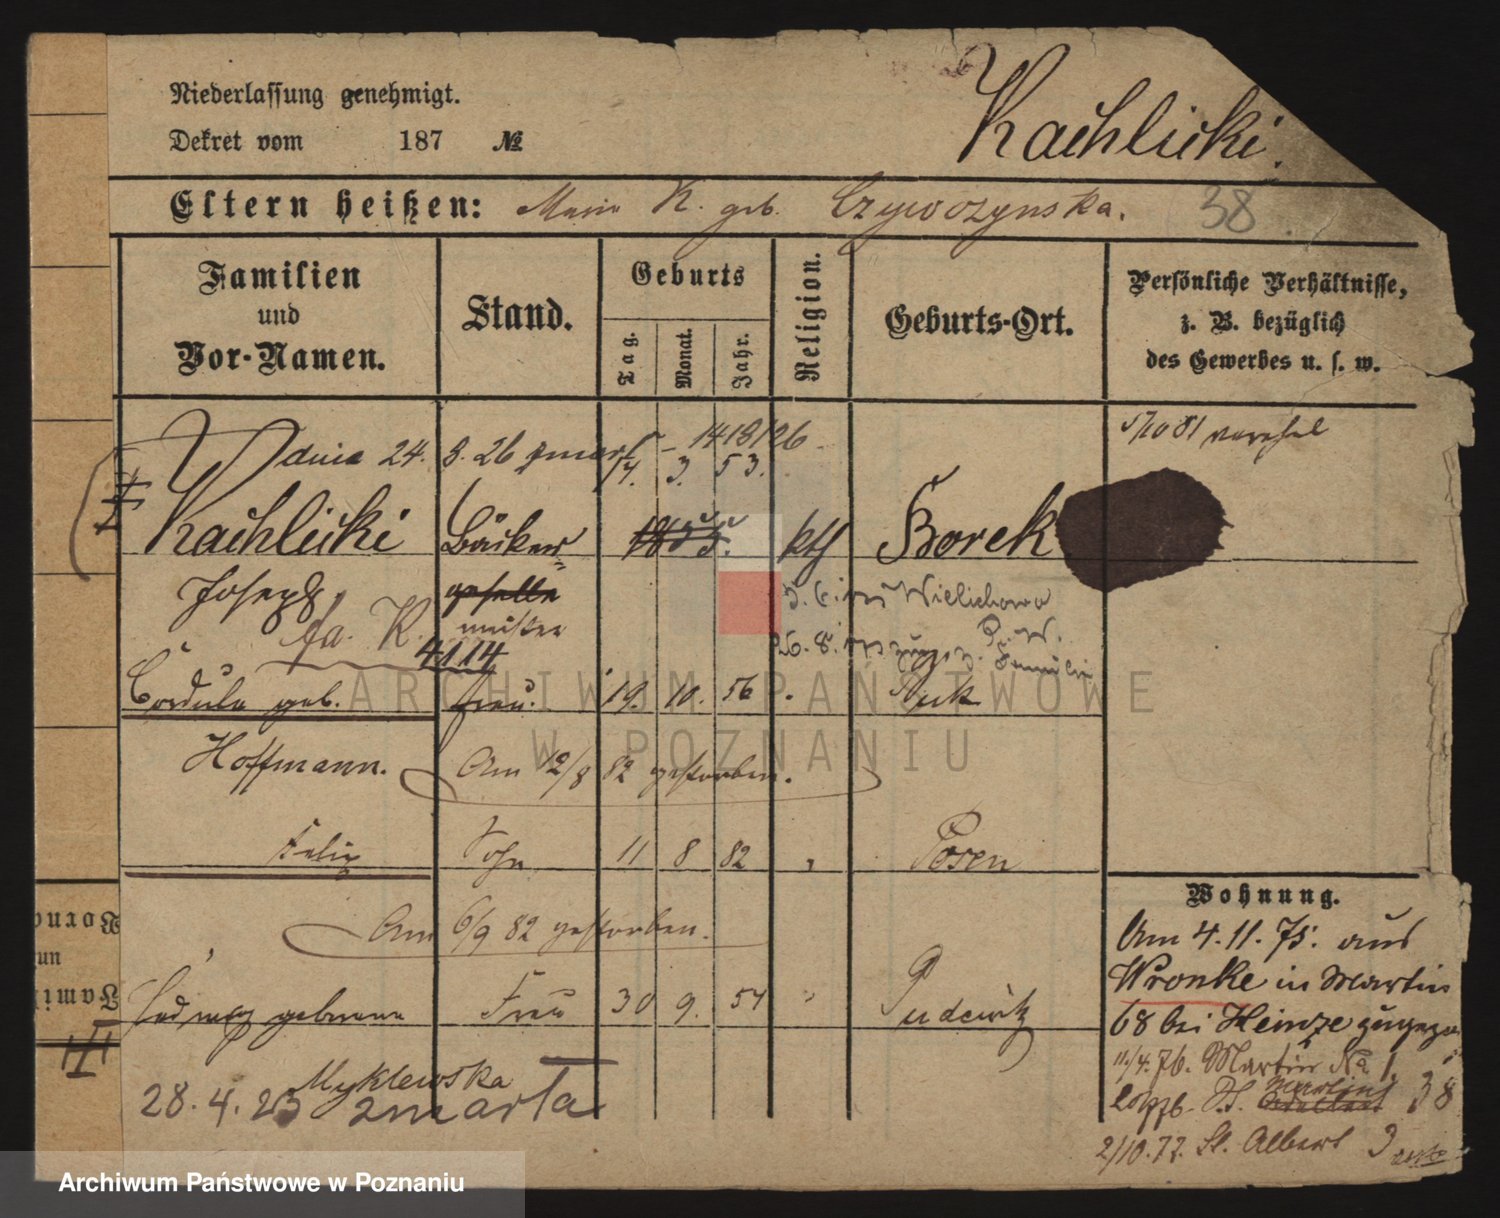 Niederlassung genehmigt.
Dekret vom 187 №
Kachlicki.
Eltern heißen: Marie K. geb. Czywczynska.
38
Familien und Vor-Namen.
Stand.
Geburts
Tag. Monat. Jahr.
Religion.
Geburts-Ort.
Persönliche Verhältnisse, z. B. bezüglich des Gewerbes u. s. w.
5/10 81
Wdnia 24. 8. 26 zmarł - 1418/26
14. 3. 53.
Kachlicki Bäcker- 1855. kth Borek
Joseph geselle
meister
fa. K.
4114
Wielichowo
26. 8. Familie
Cordula geb. Frau. 19. 10. 56 Buk
Hoffmann. Am 12/8 82 gestorben.
Felix Sohn 11 8 82 Posen
Am 6/9 82 gestorben.
Hedwig geborene Frau 30 9. 54 Pudewitz
Myklewska
28. 4. 23 zmarła
Wohnung.
Am 4. 11. 75. aus
Wronke in Martin
68 bei Heinze zugezo
11/4. 76. Martin No 1.
St. Martin 38
2/10. 77. St. Albert 3
ARCHIWUM PAŃSTWOWE
W POZNANIU
Archiwum Państwowe w Poznaniu